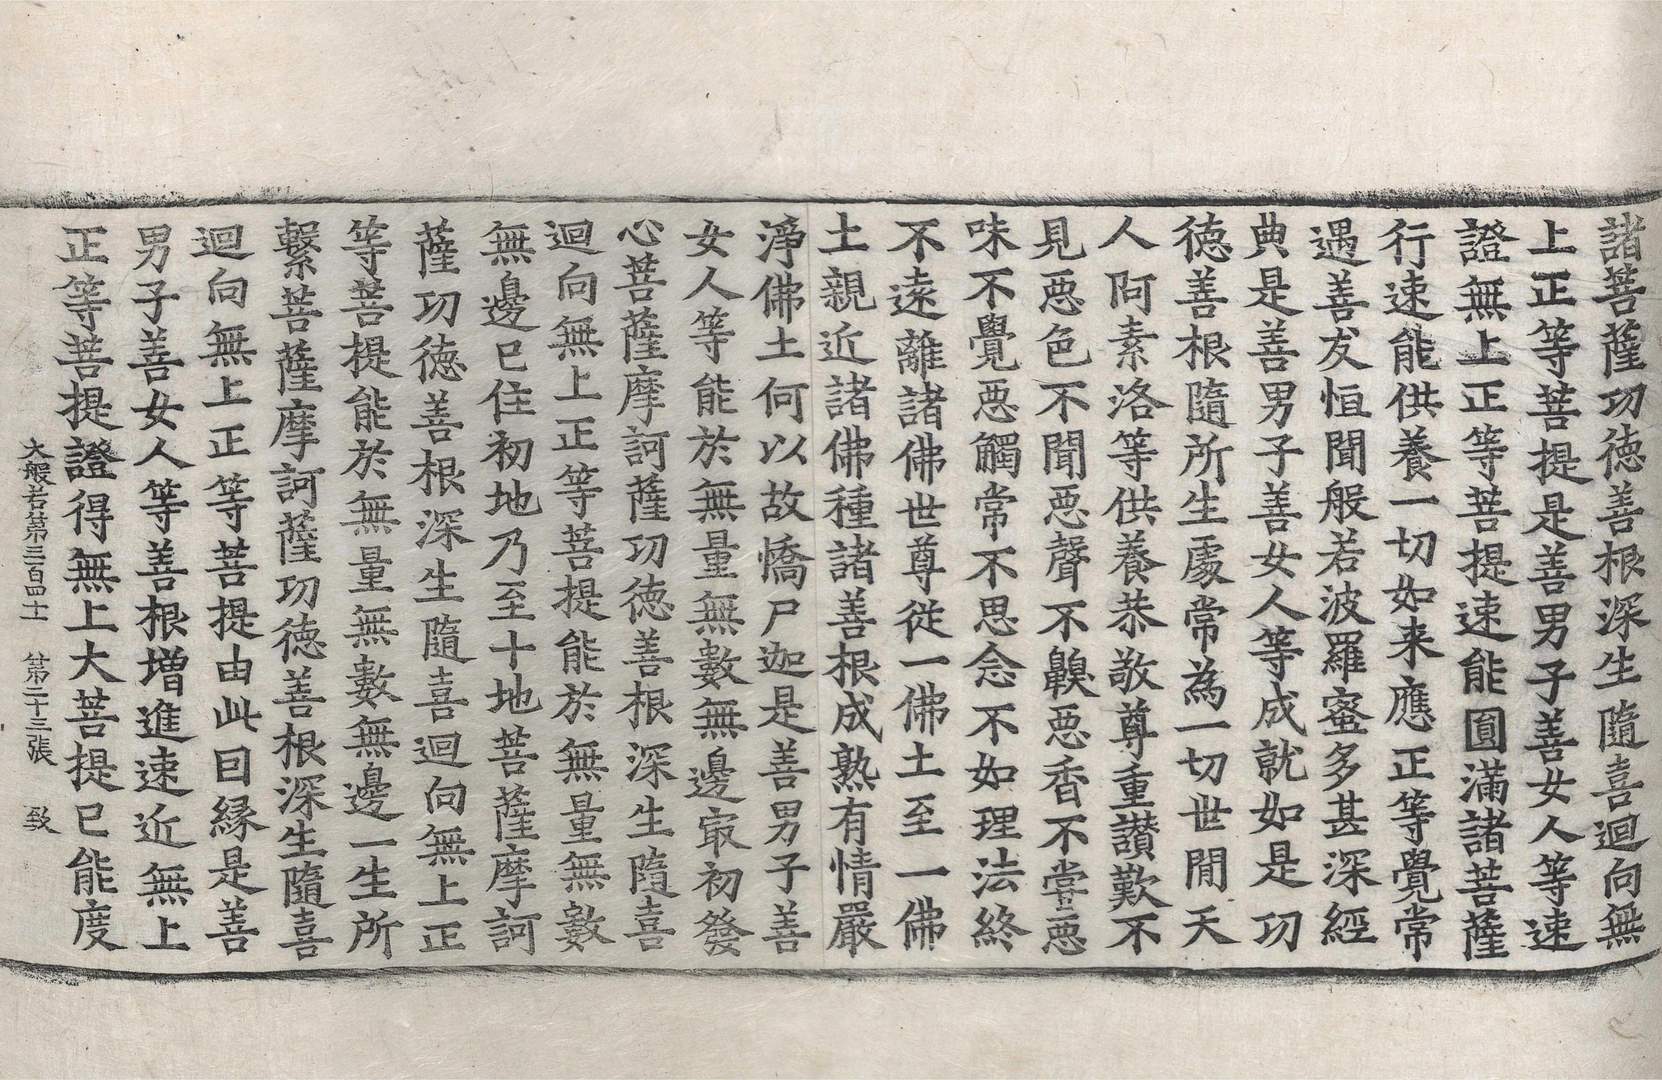 諸菩薩功德善根深生隨喜迴向無
上正等菩提是善男子善女人等速
證無上正等菩提速能圓滿諸菩薩
行速能供養一切如来應正等覺常
遇善友恒聞般若波羅蜜多甚深經
典是善男子善女人等成就如是功
德善根隨所生處常為一切世閒天
人阿素洛等供養恭敬尊重讃歎不
見惡色不聞惡聲不齅惡香不甞惡
味不覺惡觸常不思念不如理法終
不遠離諸佛世尊從一佛土至一佛
土親近諸佛種諸善根成熟有情嚴
淨佛土何以故憍尸迦是善男子善
女人等能於無量無數無邊㝡初發
心菩薩摩訶薩功德善根深生隨喜
迴向無上正等菩提能於無量無數
無邊已住初地乃至十地菩薩摩訶
薩功德善根深生隨喜迴向無上正
等菩提能於無量無數無邊一生所
繫菩薩摩訶薩功德善根深生隨喜
迴向無上正等菩提由此因緣是善
男子善女人等善根增進速近無上
正等菩提證得無上大菩提已能度
大般若第三百四十 第二十三張 致